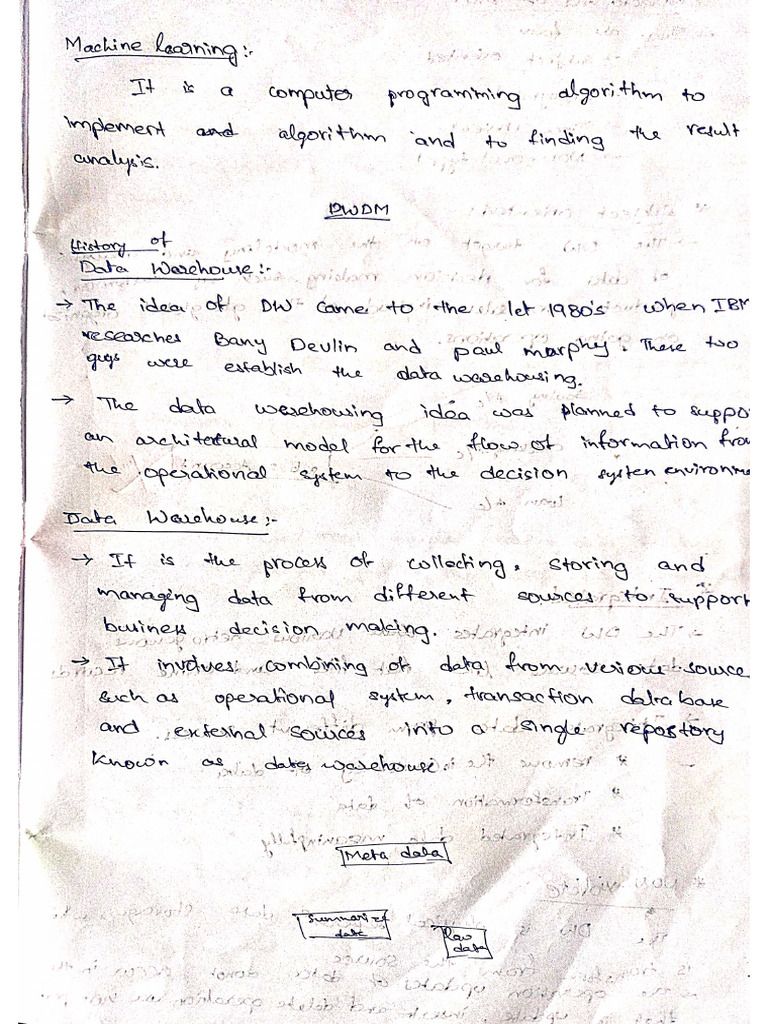 Machine learning:-
It is a computer programming algorithm to
implement and algorithm and to finding the result
analysis.
DWDM
History of
Data Warehouse:-
→ The idea of DW came to the let 1980's when IBM
researches Bany Devlin and paul morphy. These two
gugs were establish the data warehousing.
→ The data warehousing idea was planned to suppo
an architectural model for the flow of information from
the operational system to the decision system environme
Data Warehouse:-
→ It is the process of collecting, storing and
managing data from different sources to support
business decision making.
→ It involves combining of data from verious source
such as operational system, transaction database
and external sources into a single repostory
known as data warehouse.
Meta data
Summarized
data
Raw
data